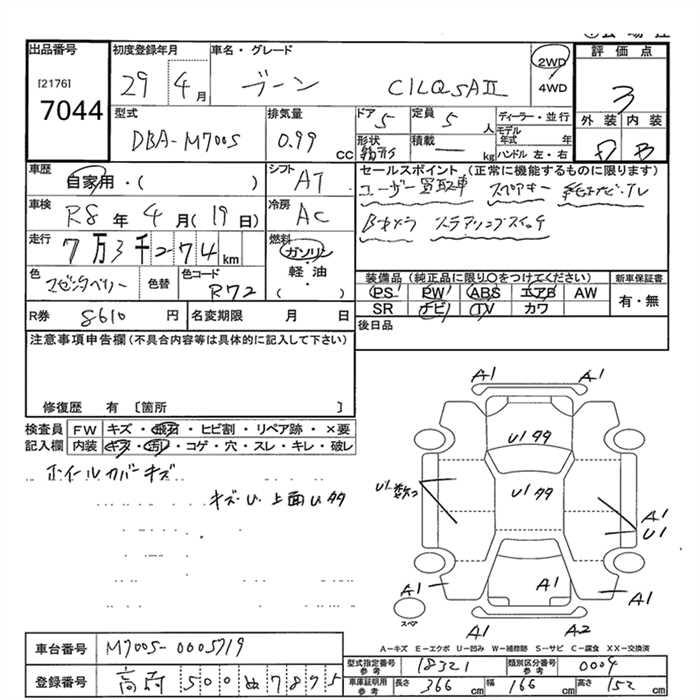 出品番号
[2176]
7044
初度登録年月
29 4月
車名・グレード
ブーン CILQ SAII
2WD
4WD
評価点
3
外装 内装
D B
型式
DBA-M700S
排気量
0.99 cc
ドア 5
定員 5 人
形状 箱形
積載 ー kg
ディーラー・並行
モデル年式 年
ハンドル 左・右
車歴
自家用・( )
シフト
AT
セールスポイント (正常に機能するものに限ります)
ユーザー買取車 スペアキー 純正ナビ、TV
Bカメラ ステアリングスイッチ
車検
R8年4月(19日)
冷房
AC
走行
7万3千274km
燃料
ガソリン
軽油
( )
色
マゼンタベリー
色替
色コード
R72
装備品 (純正品に限り○をつけてください)
PS PW ABS エアB AW
SR ナビ TV カワ
新車保証書
有・無
R券 8610 円
名変期限 月 日
後日品
注意事項申告欄 (不具合内容等は具体的に記入して下さい)
修復歴 有 〔箇所 〕
検査員記入欄
FW キズ・飛石・ヒビ割・リペア跡・×要
内装 キズ・汚れ・コゲ・穴・スレ・キレ・破レ
ホイールカバーキズ
キズ U 上面U99
A1 A1
U1 99
U1 99
U1数つ
A1
U1
A1 A1 A1
スペア
A1 A2
A-キズ E-エクボ U-凹み W-補修跡 S-サビ C-腐食 XX-交換済
車台番号
M700S-0005719
登録番号
500 ぬ 7895
型式指定番号 参考
18321
類別区分番号 参考
0004
車庫証明用 参考
長さ 366 cm
幅 166 cm
高さ 152 cm